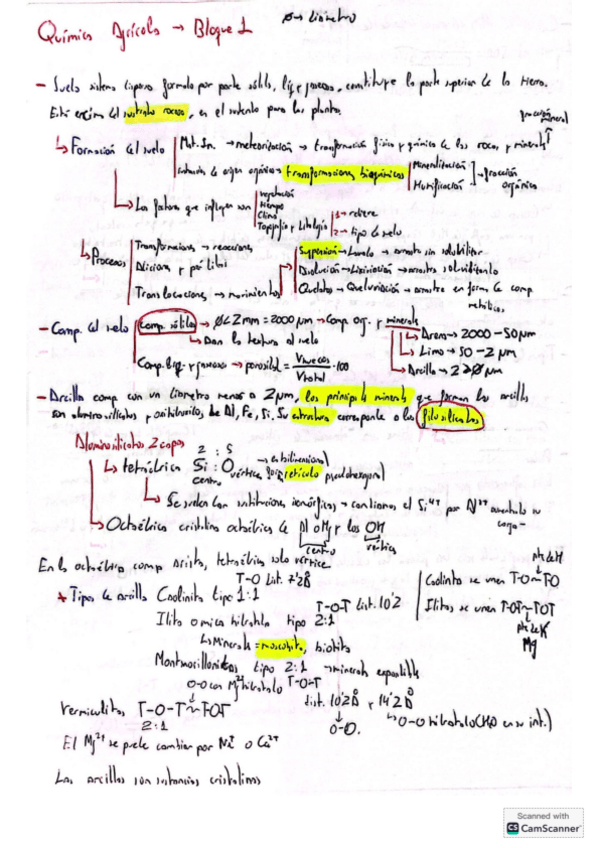 Química Agrícola → Bloque 1
Ø → diámetro
- Suelo sistema disperso formado por parte sólida, líq y gaseosa, constituye la parte superior de la tierra.
Está encima del sustrato rocoso, es el sustento para las plantas.
fracción mineral
↳ Formación del suelo
Mat. In. → meteorización → transformación física y química de las rocas y minerales
sustancias de origen orgánico → transformaciones bioquímicas
Mineralización
Humificación
→ fracción orgánica
↳ Los factores que influyen son
vegetación
tiempo
Clima
Topografía y Litología
1 → relieve
2 → tipo de suelo
↳ Procesos
Transformaciones → reacciones
Adiciones y pérdidas
Translocaciones → movimientos
Suspensión → Lavado → arrastre sin solubilizar
Disolución → Lixiviación → arrastre
Quelatos → Queluviación → arrastre en forma de comp.
- Comp. del suelo
Comp. sólidos → Ø < 2mm = 2000 µm → Comp. org. y minerales
↳ Dan la textura al suelo
Comp. líq. y gaseoso → porosidad = Vhuecos / Vtotal · 100
↳ Arena → 2000 - 50 µm
↳ Limo → 50 - 2 µm
↳ Arcilla → 2 > Ø µm
- Arcilla comp con un diámetro menor a 2 µm, los principales minerales que forman las arcillas
son aluminosilicatos y de Al, Fe, Si, Su estructura corresponde a los filosilicatos
Aluminosilicatos 2 capas
2 : 5
↳ tetraédrica Si : O
centro
vértice
→ bidimensional
retículo pseudohexagonal
↳ Se suelen con sustituciones isomórficas → cambiamos el Si⁴⁺ por Al³⁺ su
carga
↳ Octaédrica cristalina octaédrica de Al o Mg y los OH
centro
vértice
En la octaédrica comp arista, tetraédrica solo vértice
T-O dist. 7'2Å
* Tipos de arcilla Caolinita tipo 1:1
Caolinita se unen T-O~TO
Ilitas se unen T-O-T~TOT
K
Mg
T-O-T dist. 10'2
Ilita o mica hidratada tipo 2:1
↳ Minerales = moscovita, biotita
Montmorillonitas tipo 2:1 → minerales expandibles
con Mg²⁺ hidratado T-O-T
dist. 10'2Å y 14'2Å
Vermiculitas T-O-T~TOT
2:1
El Mg²⁺ se puede cambiar por Na⁺ o Ca²⁺
Las arcillas son sustancias cristalinas
Scanned with
CS CamScanner